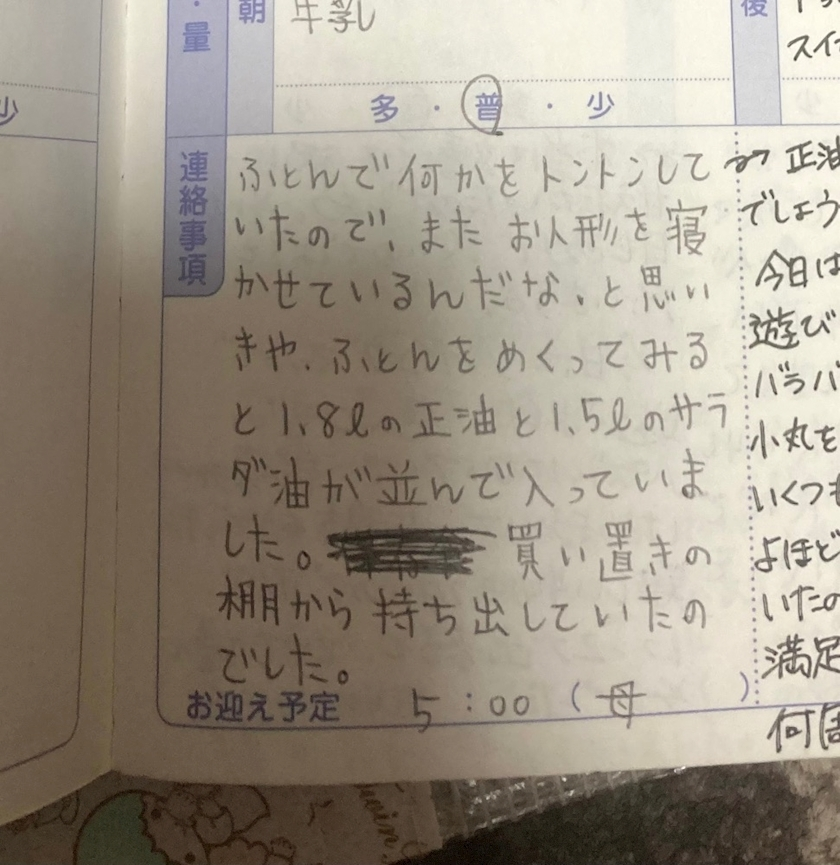 ・量
朝
牛乳
後
スイ
少
多・普・少
連絡事項
ふとんで何かをトントンして
いたので、また お人形を寝
かせているんだな、と思い
きや、ふとんをめくってみる
と1.8ℓの正油と1.5ℓのサラ
ダ油が並んで入っていま
した。 買い置きの
棚から持ち出していたの
でした。
お迎え予定 5:00(母 )
正油
でしょう
今日は
遊び
バラバ
小丸を
いくつも
よほど
いたの
満足
何回